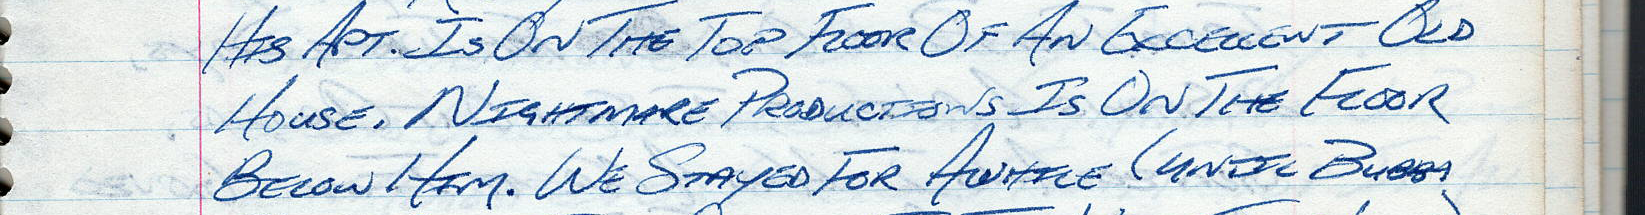 His Apt. Is On The Top Floor Of An Excellent Old
House. Nightmare Productions Is On The Floor
Below Him. We Stayed For Awhile (until Bubba